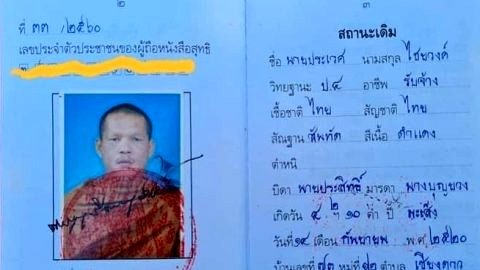 ๒
ที่ ๓๓ /๒๕๖๐
เลขประจำตัวประชาชนของผู้ถือหนังสือสุทธิ
๓
สถานะเดิม
ชื่อ นายประเวศ นามสกุล ไชยวงค์
วิทยฐานะ ป.๔ อาชีพ รับจ้าง
เชื้อชาติ ไทย สัญชาติ ไทย
สัณฐาน สันทัด สีเนื้อ ดำแดง
ตำหนิ
บิดา นายประสิทธิ์ มารดา นางบุญยวง
เกิดวัน ๔ ๒ฯ ๑๐ ค่ำ ปี มะเส็ง
วันที่ ๑๔ เดือน กันยายน พ.ศ. ๒๕๒๐
บ้านเลขที่ หมู่ที่ ตำบล เชียงดาว